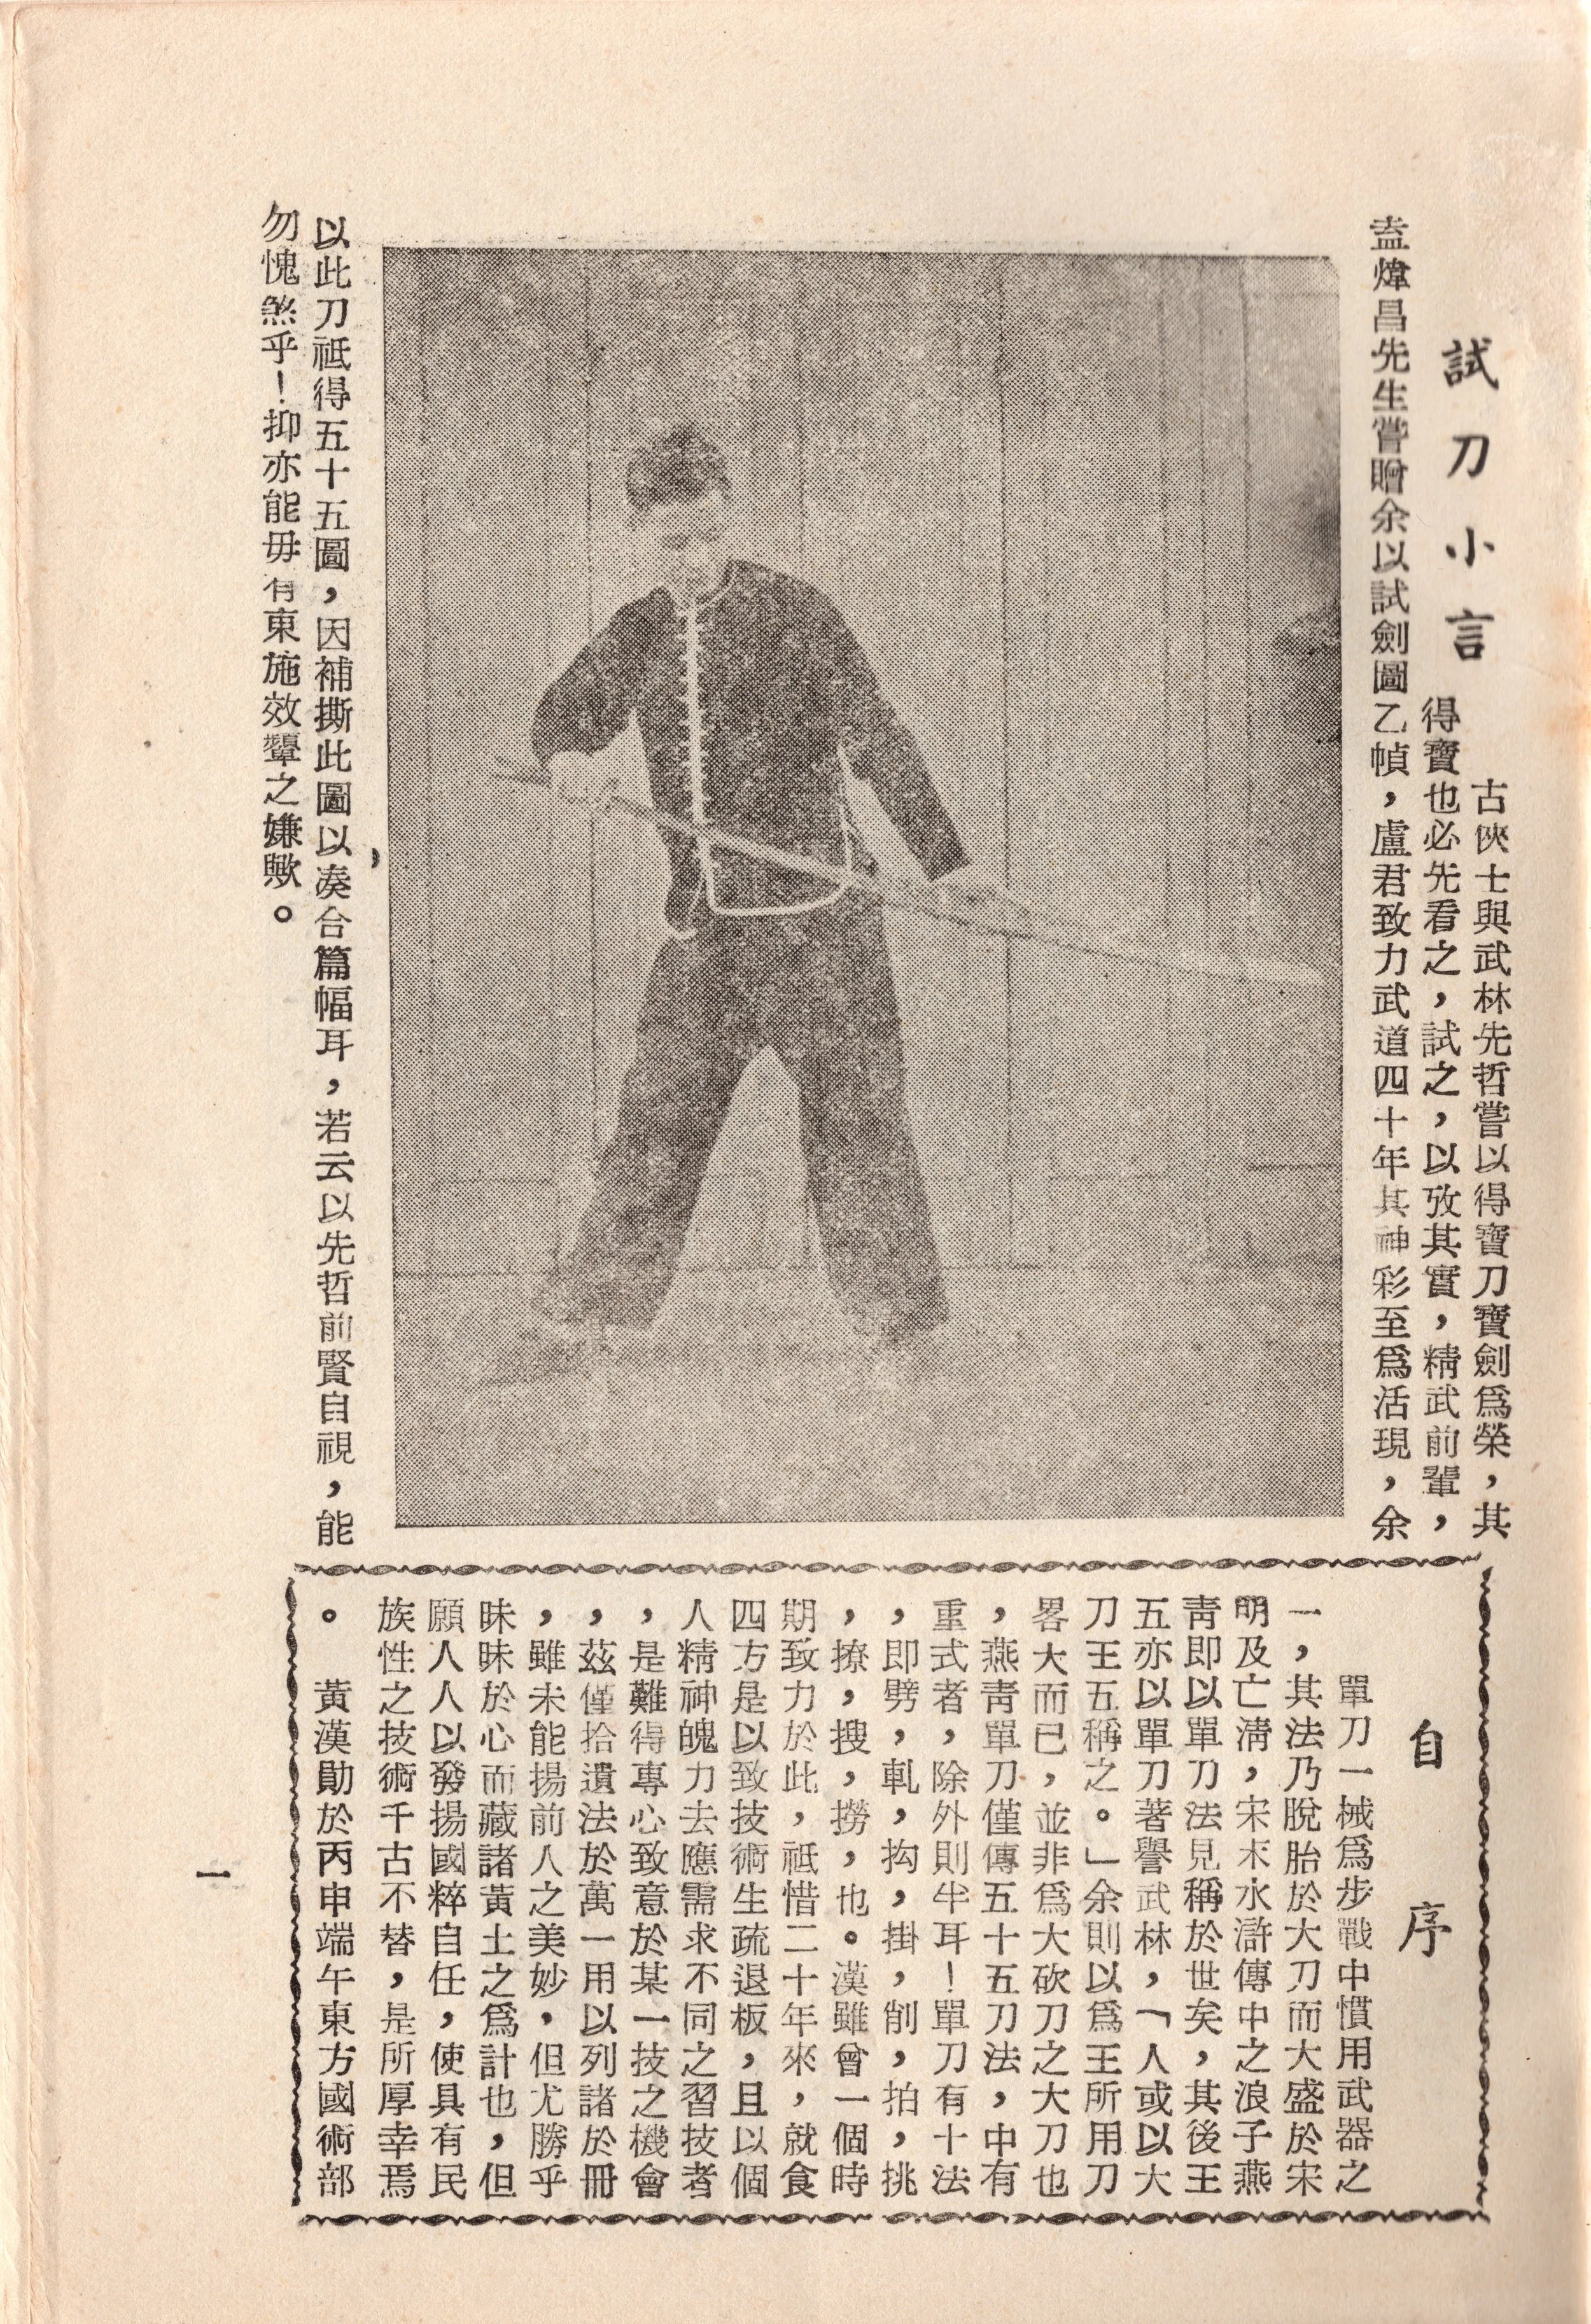 試刀小言
古俠士與武林先哲嘗以得寶刀寶劍爲榮，其
得寶也必先看之，試之，以攷其實，精武前輩，
盍煒昌先生嘗贈余以試劍圖乙幀，盧君致力武道四十年其神彩至爲活現，余
以此刀祗得五十五圖，因補撕此圖以凑合篇幅耳，若云以先哲前賢自視，能
勿愧煞乎！抑亦能毋有東施效顰之嫌歟。
自序
單刀一械爲步戰中慣用武器之
一，其法乃脫胎於大刀而大盛於宋
明及亡清，宋末水滸傳中之浪子燕
靑即以單刀法見稱於世矣，其後王
五亦以單刀著譽武林，「人或以大
刀王五稱之。」余則以爲王所用刀
畧大而已，並非爲大砍刀之大刀也
，燕靑單刀僅傳五十五刀法，中有
重式者，除外則半耳！單刀有十法
，即劈，軋，抅，掛，削，拍，挑
，撩，搜，撈，也。漢雖曾一個時
期致力於此，祗惜二十年來，就食
四方是以致技術生疏退板，且以個
人精神魄力去應需求不同之習技者
，是難得專心致意於某一技之機會
，茲僅拾遺法於萬一用以列諸於冊
，雖未能揚前人之美妙，但尤勝乎
昧昧於心而藏諸黃土之爲計也，但
願人人以發揚國粹自任，使具有民
族性之技術千古不替，是所厚幸焉
。　黃漢勛於丙申端午東方國術部
一